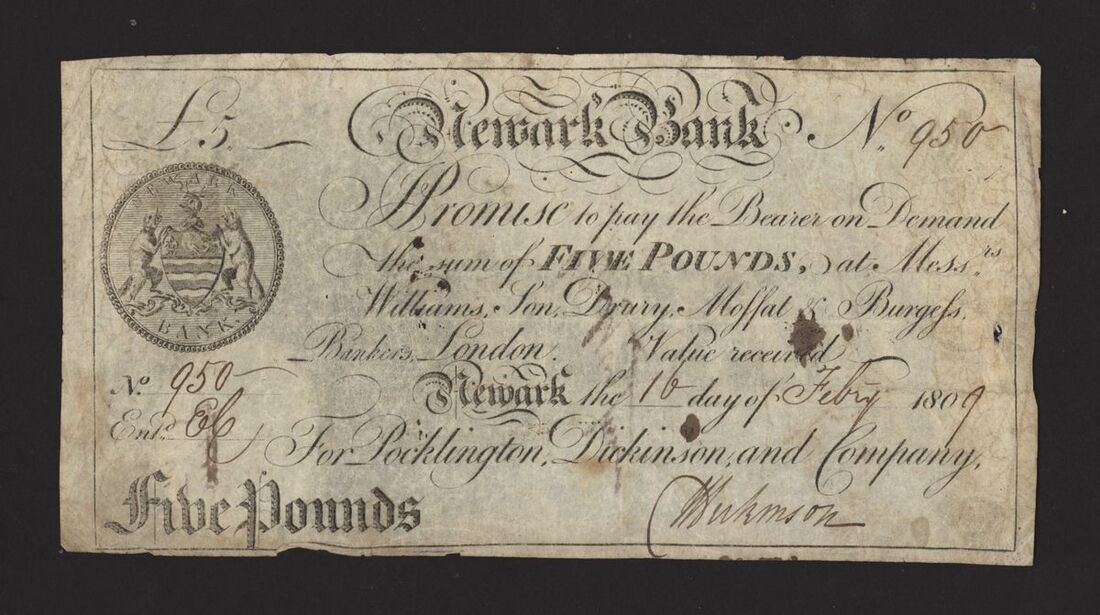 £5. Newark Bank. No. 950
NEWARK
BANK
I Promise to pay the Bearer on Demand
the sum of FIVE POUNDS, at Messrs.
Williams, Son, Drury, Moffat & Burgess,
Bankers, London. Value received
No. 950 Newark the 10 day of Febry 1809
Entd. EC
For Pocklington, Dickinson, and Company,
Five Pounds
Dickinson